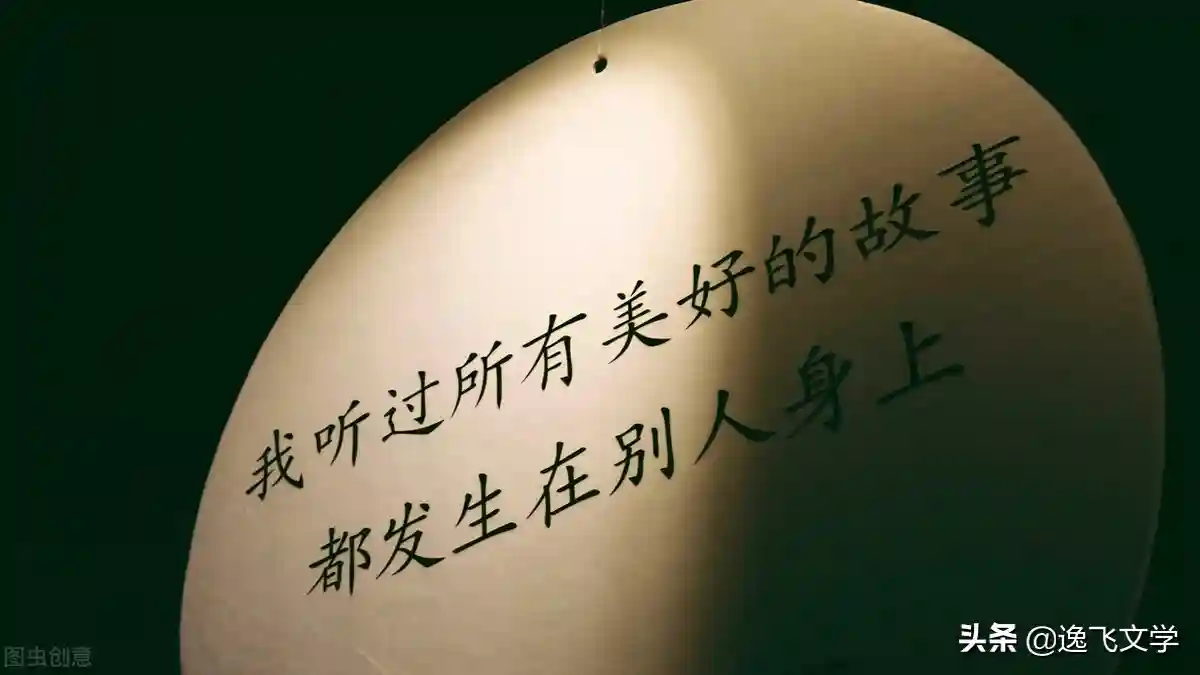 我听过所有美好的故事
都发生在别人身上
图虫创意
头条 @逸飞文学